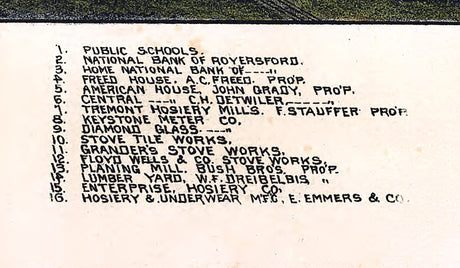 1. PUBLIC SCHOOLS.
2. NATIONAL BANK OF ROYERSFORD.
3. HOME NATIONAL BANK OF ----„
4. FREED HOUSE, A.C. FREED. PROP.
5. AMERICAN HOUSE, JOHN GRADY, PROP.
6. CENTRAL ---„ C.H. DETWILER, -----„
7. TREMONT HOSIERY MILLS. F. STAUFFER PROP.
8. KEYSTONE METER CO,
9. DIAMOND GLASS ---„
10. STOVE TILE WORKS,
11. GRANDER'S STOVE WORKS,
12. FLOYD WELLS & CO. STOVE WORKS,
13. PLANING MILL, BUSH BRO'S, PROP.
14. LUMBER YARD, W.F. DREIBELBIS, „
15. ENTERPRISE, HOSIERY CO,
16. HOSIERY & UNDERWEAR MFG, E. EMMERS & CO.